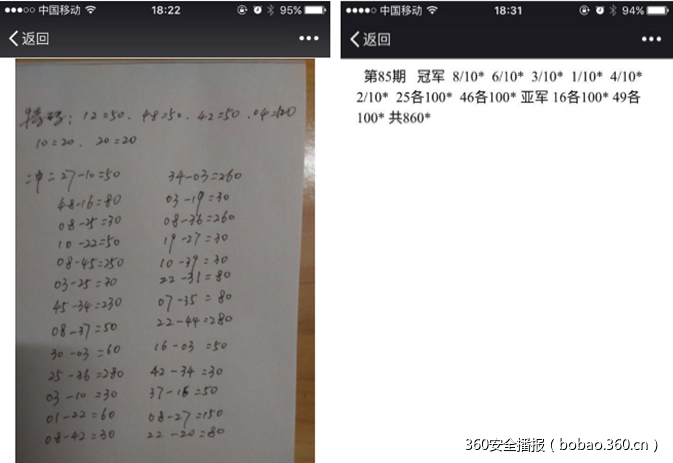 中国移动 18:22 95%
返回
特码: 12=50、48=50、42=50、04=120
10=20、20=20
二中二 27-10=50 34-03=260
48-16=80 03-19=30
08-25=30 08-36=260
10-22=50 19-27=30
08-45=250 10-39=30
03-25=30 22-31=80
45-34=230 07-35=80
08-37=50 22-44=280
30-03=60 16-03=50
25-36=280 42-34=30
03-10=30 37-16=50
01-22=60 08-27=150
08-42=30 22-20=80
中国移动 18:31 94%
返回
第85期 冠军 8/10* 6/10* 3/10* 1/10* 4/10*
2/10* 25各100* 46各100* 亚军 16各100* 49各
100* 共860*
360安全播报（bobao.360.cn）